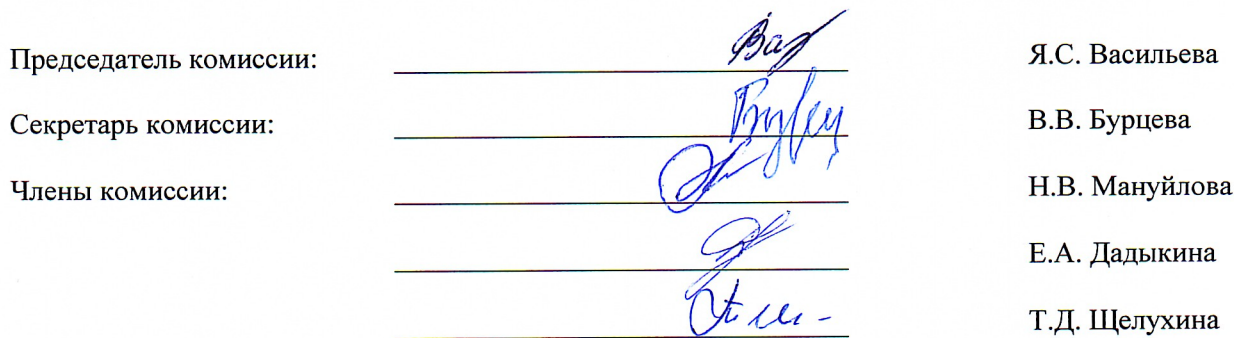 Председатель комиссии: Я.С. Васильева
Секретарь комиссии: В.В. Бурцева
Члены комиссии: Н.В. Мануйлова
Е.А. Дадыкина
Т.Д. Щелухина